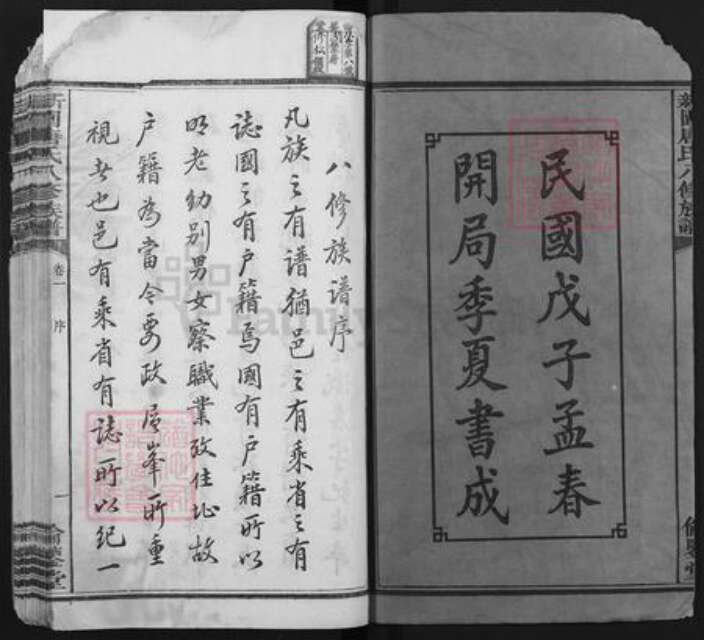 民國戊子孟春
開局季夏書成
八修族譜序
凡族之有譜猶邑之有乘省之有
誌國之有戶籍焉國有戶籍所以
明老幼別男女察職業攷住址故
戶籍為當今要政層峯所重
視者也邑有乘省有誌所以紀一
卷一
序
一